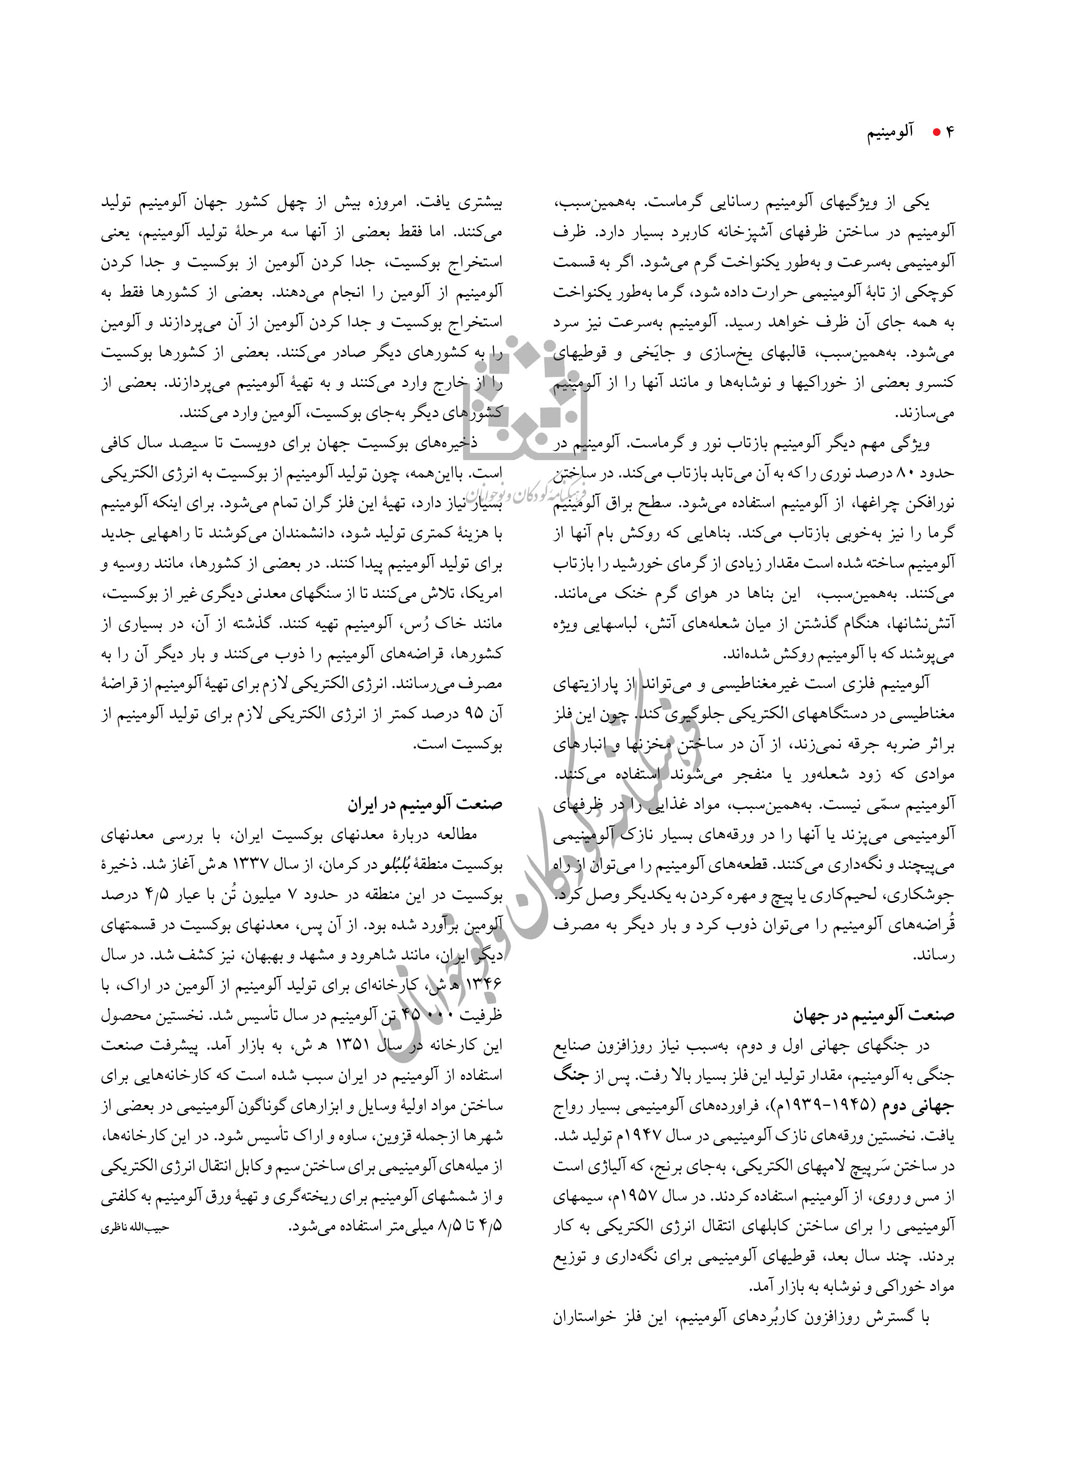 ۴ • آلومینیم
یکی از ویژگیهای آلومینیم رسانایی گرماست. به‌همین‌سبب،
آلومینیم در ساختن ظرفهای آشپزخانه کاربرد بسیار دارد. ظرف
آلومینیمی به‌سرعت و به‌طور یکنواخت گرم می‌شود. اگر به قسمت
کوچکی از تابهٔ آلومینیمی حرارت داده شود، گرما به‌طور یکنواخت
به همه جای آن ظرف خواهد رسید. آلومینیم به‌سرعت نیز سرد
می‌شود. به‌همین‌سبب، قالبهای یخ‌سازی و جایَخی و قوطیهای
کنسرو بعضی از خوراکیها و نوشابه‌ها و مانند آنها را از آلومینیم
می‌سازند.
ویژگی مهم دیگر آلومینیم بازتاب نور و گرماست. آلومینیم در
حدود ۸۰ درصد نوری را که به آن می‌تابد بازتاب می‌کند. در ساختن
نورافکن چراغها، از آلومینیم استفاده می‌شود. سطح براق آلومینیم
گرما را نیز به‌خوبی بازتاب می‌کند. بناهایی که روکش بام آنها از
آلومینیم ساخته شده است مقدار زیادی از گرمای خورشید را بازتاب
می‌کنند. به‌همین‌سبب، این بناها در هوای گرم خنک می‌مانند.
آتش‌نشانها، هنگام گذشتن از میان شعله‌های آتش، لباسهایی ویژه
می‌پوشند که با آلومینیم روکش شده‌اند.
آلومینیم فلزی است غیرمغناطیسی و می‌تواند از پارازیتهای
مغناطیسی در دستگاههای الکتریکی جلوگیری کند. چون این فلز
براثر ضربه جرقه نمی‌زند، از آن در ساختن مخزنها و انبارهای
موادی که زود شعله‌ور یا منفجر می‌شوند استفاده می‌کنند.
آلومینیم سمّی نیست. به‌همین‌سبب، مواد غذایی را در ظرفهای
آلومینیمی می‌پزند یا آنها را در ورقه‌های بسیار نازک آلومینیمی
می‌پیچند و نگه‌داری می‌کنند. قطعه‌های آلومینیم را می‌توان از راه
جوشکاری، لحیم‌کاری یا پیچ و مهره کردن به یکدیگر وصل کرد.
قُراضه‌های آلومینیم را می‌توان ذوب کرد و بار دیگر به مصرف
رساند.
صنعت آلومینیم در جهان
در جنگهای جهانی اول و دوم، به‌سبب نیاز روزافزون صنایع
جنگی به آلومینیم، مقدار تولید این فلز بسیار بالا رفت. پس از جنگ
جهانی دوم (۱۹۴۵-۱۹۳۹م)، فراورده‌های آلومینیمی بسیار رواج
یافت. نخستین ورقه‌های نازک آلومینیمی در سال ۱۹۴۷م تولید شد.
در ساختن سَرپیچ لامپهای الکتریکی، به‌جای برنج، که آلیاژی است
از مس و روی، از آلومینیم استفاده کردند. در سال ۱۹۵۷م، سیمهای
آلومینیمی را برای ساختن کابلهای انتقال انرژی الکتریکی به کار
بردند. چند سال بعد، قوطیهای آلومینیمی برای نگه‌داری و توزیع
مواد خوراکی و نوشابه به بازار آمد.
با گسترش روزافزون کاربُردهای آلومینیم، این فلز خواستاران
بیشتری یافت. امروزه بیش از چهل کشور جهان آلومینیم تولید
می‌کنند. اما فقط بعضی از آنها سه مرحلهٔ تولید آلومینیم، یعنی
استخراج بوکسیت، جدا کردن آلومین از بوکسیت و جدا کردن
آلومینیم از آلومین را انجام می‌دهند. بعضی از کشورها فقط به
استخراج بوکسیت و جدا کردن آلومین از آن می‌پردازند و آلومین
را به کشورهای دیگر صادر می‌کنند. بعضی از کشورها بوکسیت
را از خارج وارد می‌کنند و به تهیهٔ آلومینیم می‌پردازند. بعضی از
کشورهای دیگر به‌جای بوکسیت، آلومین وارد می‌کنند.
ذخیره‌های بوکسیت جهان برای دویست تا سیصد سال کافی
است. بااین‌همه، چون تولید آلومینیم از بوکسیت به انرژی الکتریکی
بسیار نیاز دارد، تهیهٔ این فلز گران تمام می‌شود. برای اینکه آلومینیم
با هزینهٔ کمتری تولید شود، دانشمندان می‌کوشند تا راههایی جدید
برای تولید آلومینیم پیدا کنند. در بعضی از کشورها، مانند روسیه و
امریکا، تلاش می‌کنند تا از سنگهای معدنی دیگری غیر از بوکسیت،
مانند خاک رُس، آلومینیم تهیه کنند. گذشته از آن، در بسیاری از
کشورها، قراضه‌های آلومینیم را ذوب می‌کنند و بار دیگر آن را به
مصرف می‌رسانند. انرژی الکتریکی لازم برای تهیهٔ آلومینیم از قراضهٔ
آن ۹۵ درصد کمتر از انرژی الکتریکی لازم برای تولید آلومینیم از
بوکسیت است.
صنعت آلومینیم در ایران
مطالعه دربارهٔ معدنهای بوکسیت ایران، با بررسی معدنهای
بوکسیت منطقهٔ بُلبُلو در کرمان، از سال ۱۳۳۷ ه‍ ش آغاز شد. ذخیرهٔ
بوکسیت در این منطقه در حدود ۷ میلیون تُن با عیار ۴/۵ درصد
آلومین برآورد شده بود. از آن پس، معدنهای بوکسیت در قسمتهای
دیگر ایران، مانند شاهرود و مشهد و بهبهان، نیز کشف شد. در سال
۱۳۴۶ ه‍ ش، کارخانه‌ای برای تولید آلومینیم از آلومین در اراک، با
ظرفیت ۴۵۰۰۰ تن آلومینیم در سال تأسیس شد. نخستین محصول
این کارخانه در سال ۱۳۵۱ ه‍ ش، به بازار آمد. پیشرفت صنعت
استفاده از آلومینیم در ایران سبب شده است که کارخانه‌هایی برای
ساختن مواد اولیهٔ وسایل و ابزارهای گوناگون آلومینیمی در بعضی از
شهرها ازجمله قزوین، ساوه و اراک تأسیس شود. در این کارخانه‌ها،
از میله‌های آلومینیمی برای ساختن سیم و کابل انتقال انرژی الکتریکی
و از شمشهای آلومینیم برای ریخته‌گری و تهیهٔ ورق آلومینیم به کلفتی
۴/۵ تا ۸/۵ میلی‌متر استفاده می‌شود. حبیب‌الله ناظری
فرهنگنامه کودکان و نوجوانان
فرهنگنامه کودکان و نوجوانان